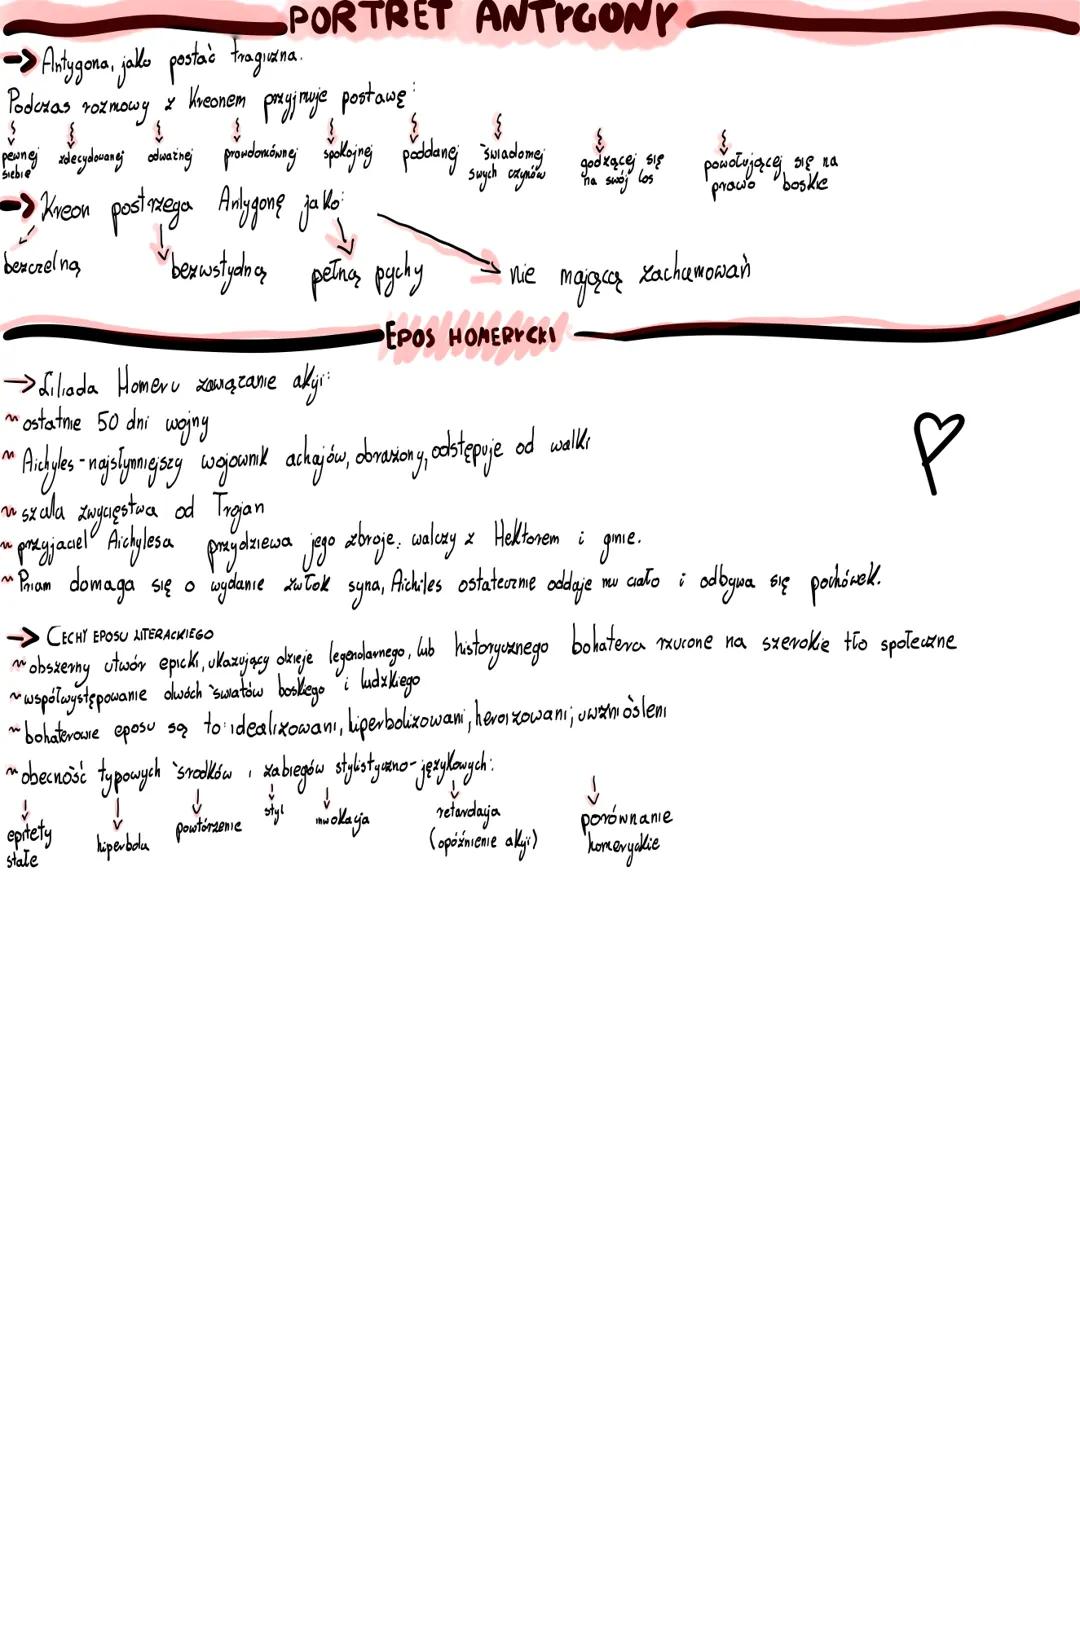 PORTRET ANTYGONY
→ Antygona, jako postać tragiczna.
Podczas rozmowy z Kreonem przyjmuje postawę:
pewnej siebie zdecydowanej odważnej prawdomównej spokojnej poddanej świadomej swych czynów godzącej się na swój los powołującej się na prawo boskie
→ Kreon postrzega Antygonę jako:
bezczelną bezwstydną pełną pychy nie mającą zachamowań
EPOS HOMERYCKI
→ Iliada Homeru zawiązanie akcji:
~ ostatnie 50 dni wojny
~ Aichyles - najsłynniejszy wojownik achajów, obrażony, odstępuje od walki
~ szala zwycięstwa od Trojan
~ przyjaciel Aichylesa przydziewa jego zbroje: walczy z Hektorem i ginie.
~ Priam domaga się o wydanie zwłok syna, Aichiles ostatecznie oddaje mu ciało i odbywa się pochówek.
→ CECHY EPOSU LITERACKIEGO
~ obszerny utwór epicki, ukazujący dzieje legendarnego, lub historycznego bohatera rzucone na szerokie tło społeczne
~ współwystępowanie dwóch światów boskiego i ludzkiego
~ bohaterowie eposu są to: idealizowani, hiperbolizowani, heroizowani; uwzniośleni
~ obecność typowych środków i zabiegów stylistyczno-językowych:
epitety stałe hiperbola powtórzenie styl inwokacja retardacja (opóźnienie akcji) porównanie homeryckie